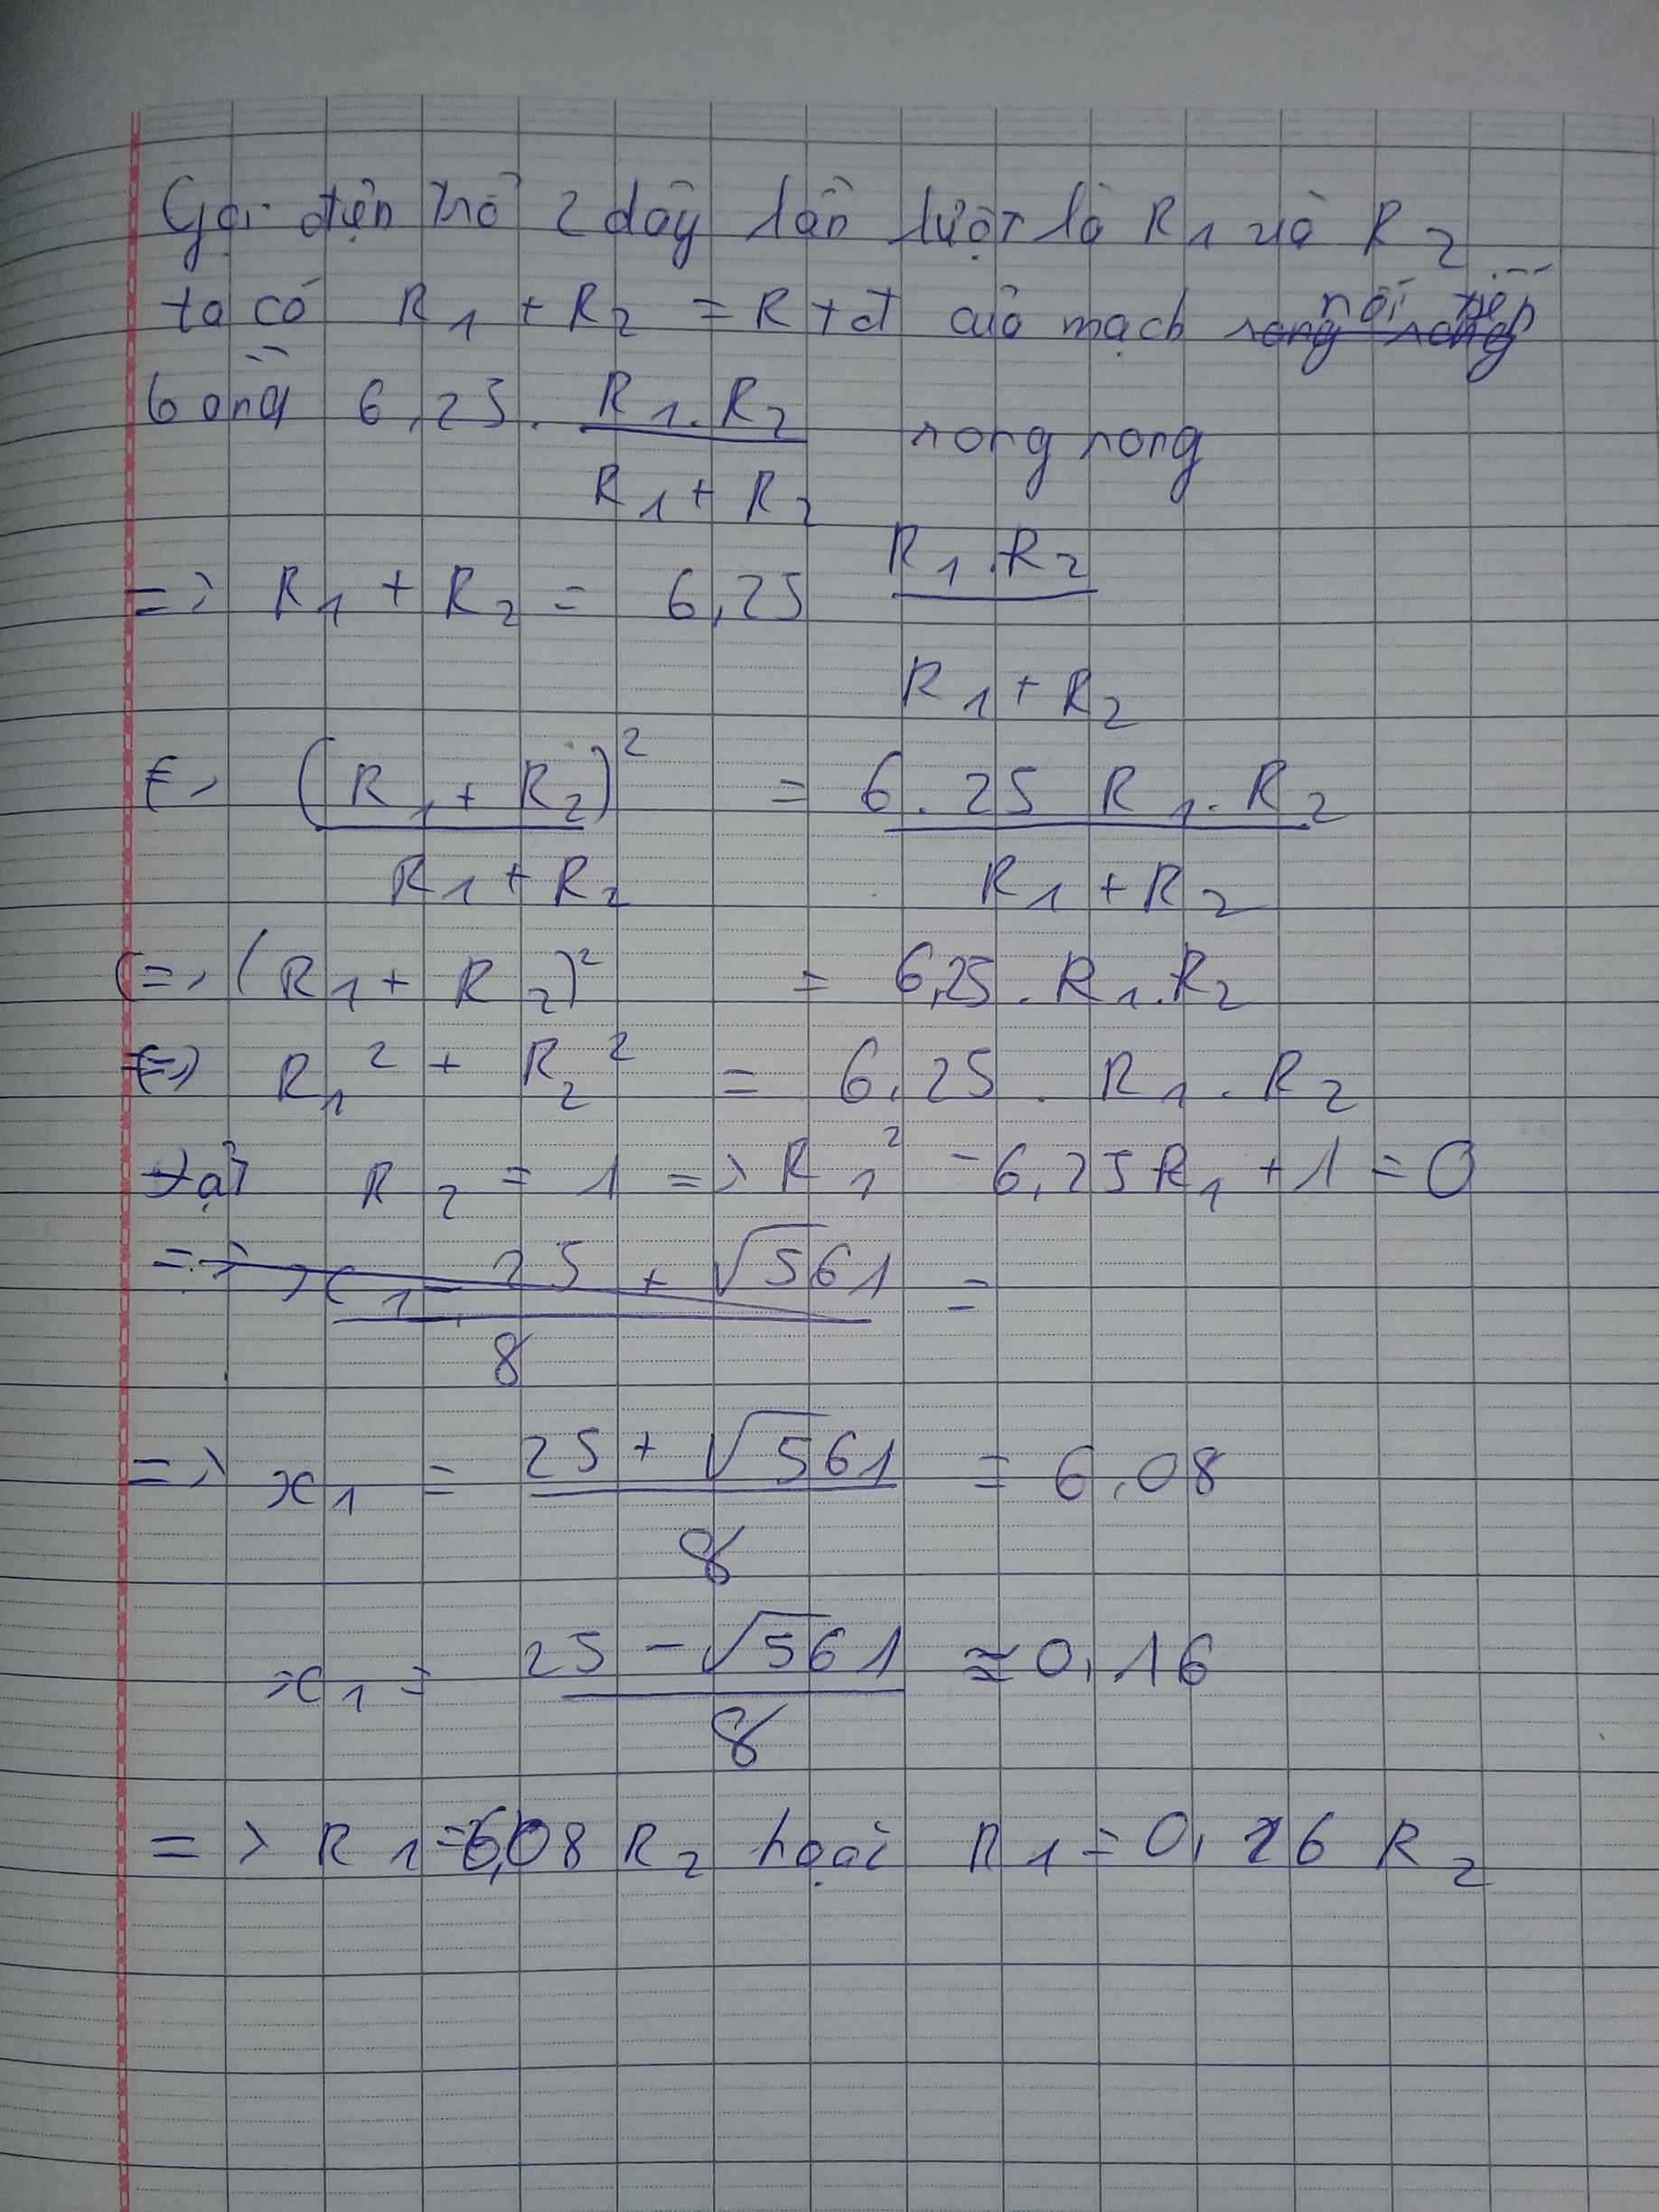 Gọi điện trở 2 dây lần lượt là R1 và R2
ta có R1 + R2 = Rtđ của mạch nối tiếp
bằng 6,25. R1.R2 / R1 + R2 song song
=> R1 + R2 = 6,25 R1.R2 / R1 + R2
<=> (R1 + R2)² / R1 + R2 = 6.25 R1.R2 / R1 + R2
<=> (R1 + R2)² = 6,25. R1.R2
<=> R1² + R2² = 6,25. R1.R2
Đặt R2 = 1 => R1² - 6,25R1 + 1 = 0
=> x1 = 25 + √561 / 8 =
=> x1 = 25 + √561 / 8 = 6,08
x1 = 25 - √561 / 8 ≈ 0,16
=> R1 = 6,08 R2 hoặc R1 = 0,16 R2